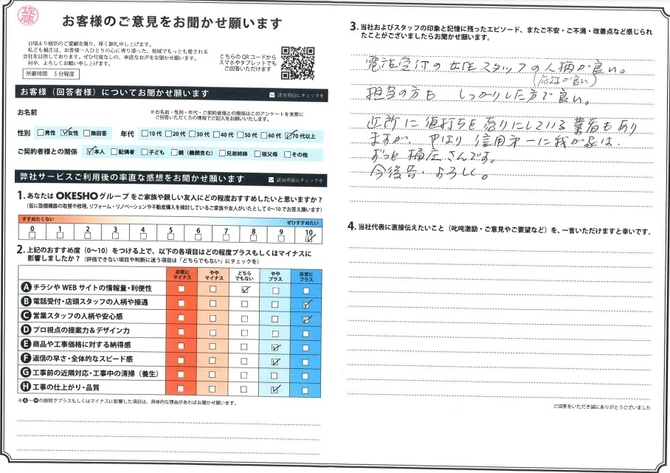 お客様のご意見をお聞かせ願います
こちらのQRコードから
スマホやタブレットでも
ご回答いただけます
所要時間 5分程度
お客様（回答者様）についてお聞かせ願います
該当項目にチェックを
お名前
性別 男性 女性 無回答 年代 10代 20代 30代 40代 50代 60代 70代以上
ご契約者様との関係 本人 配偶者 子ども 親（義親含む） 兄弟姉妹 祖父母 その他
弊社サービスご利用後の率直な感想をお聞かせ願います
該当項目にチェックを
1. あなたは OKESHOグループをご家族や親しい友人にどの程度おすすめしたいと思いますか？
すすめたくない ぜひすすめたい
0 1 2 3 4 5 6 7 8 9 10
2. 上記のおすすめ度（0〜10）をつける上で、以下の各項目はどの程度プラスもしくはマイナスに
影響しましたか？（評価できない項目や判断に迷う項目は「どちらでもない」にチェックを）
非常に
マイナス
やや
マイナス
どちら
でもない
やや
プラス
非常に
プラス
A チラシやWEBサイトの情報量・利便性
B 電話受付・店頭スタッフの人柄や接遇
C 営業スタッフの人柄や安心感
D プロ視点の提案力＆デザイン力
E 商品や工事価格に対する納得感
F 返信の早さ・全体的なスピード感
G 工事前の近隣対応・工事中の清掃（養生）
H 工事の仕上がり・品質
※A〜Hの設問でプラスもしくはマイナスに影響した項目は、具体的な理由があればお聞かせ願います。
3. 当社およびスタッフの印象と記憶に残ったエピソード、またご不安・ご不満・改善点など感じられ
たことがございましたらお聞かせ願います。
電話受付の女性スタッフの人柄が良い。
(応対が良い)
担当の方も しっかりした方で良い。
近所に値打ちを売りにしている業者もあり
ますが、やはり信用第一に我が家は、
ずっと桶庄さんです。
今後共、よろしく。
4. 当社代表に直接伝えたいこと（叱咤激励・ご意見やご要望など）を、一言いただけますと幸いです。
ご回答をいただき誠にありがとうございました